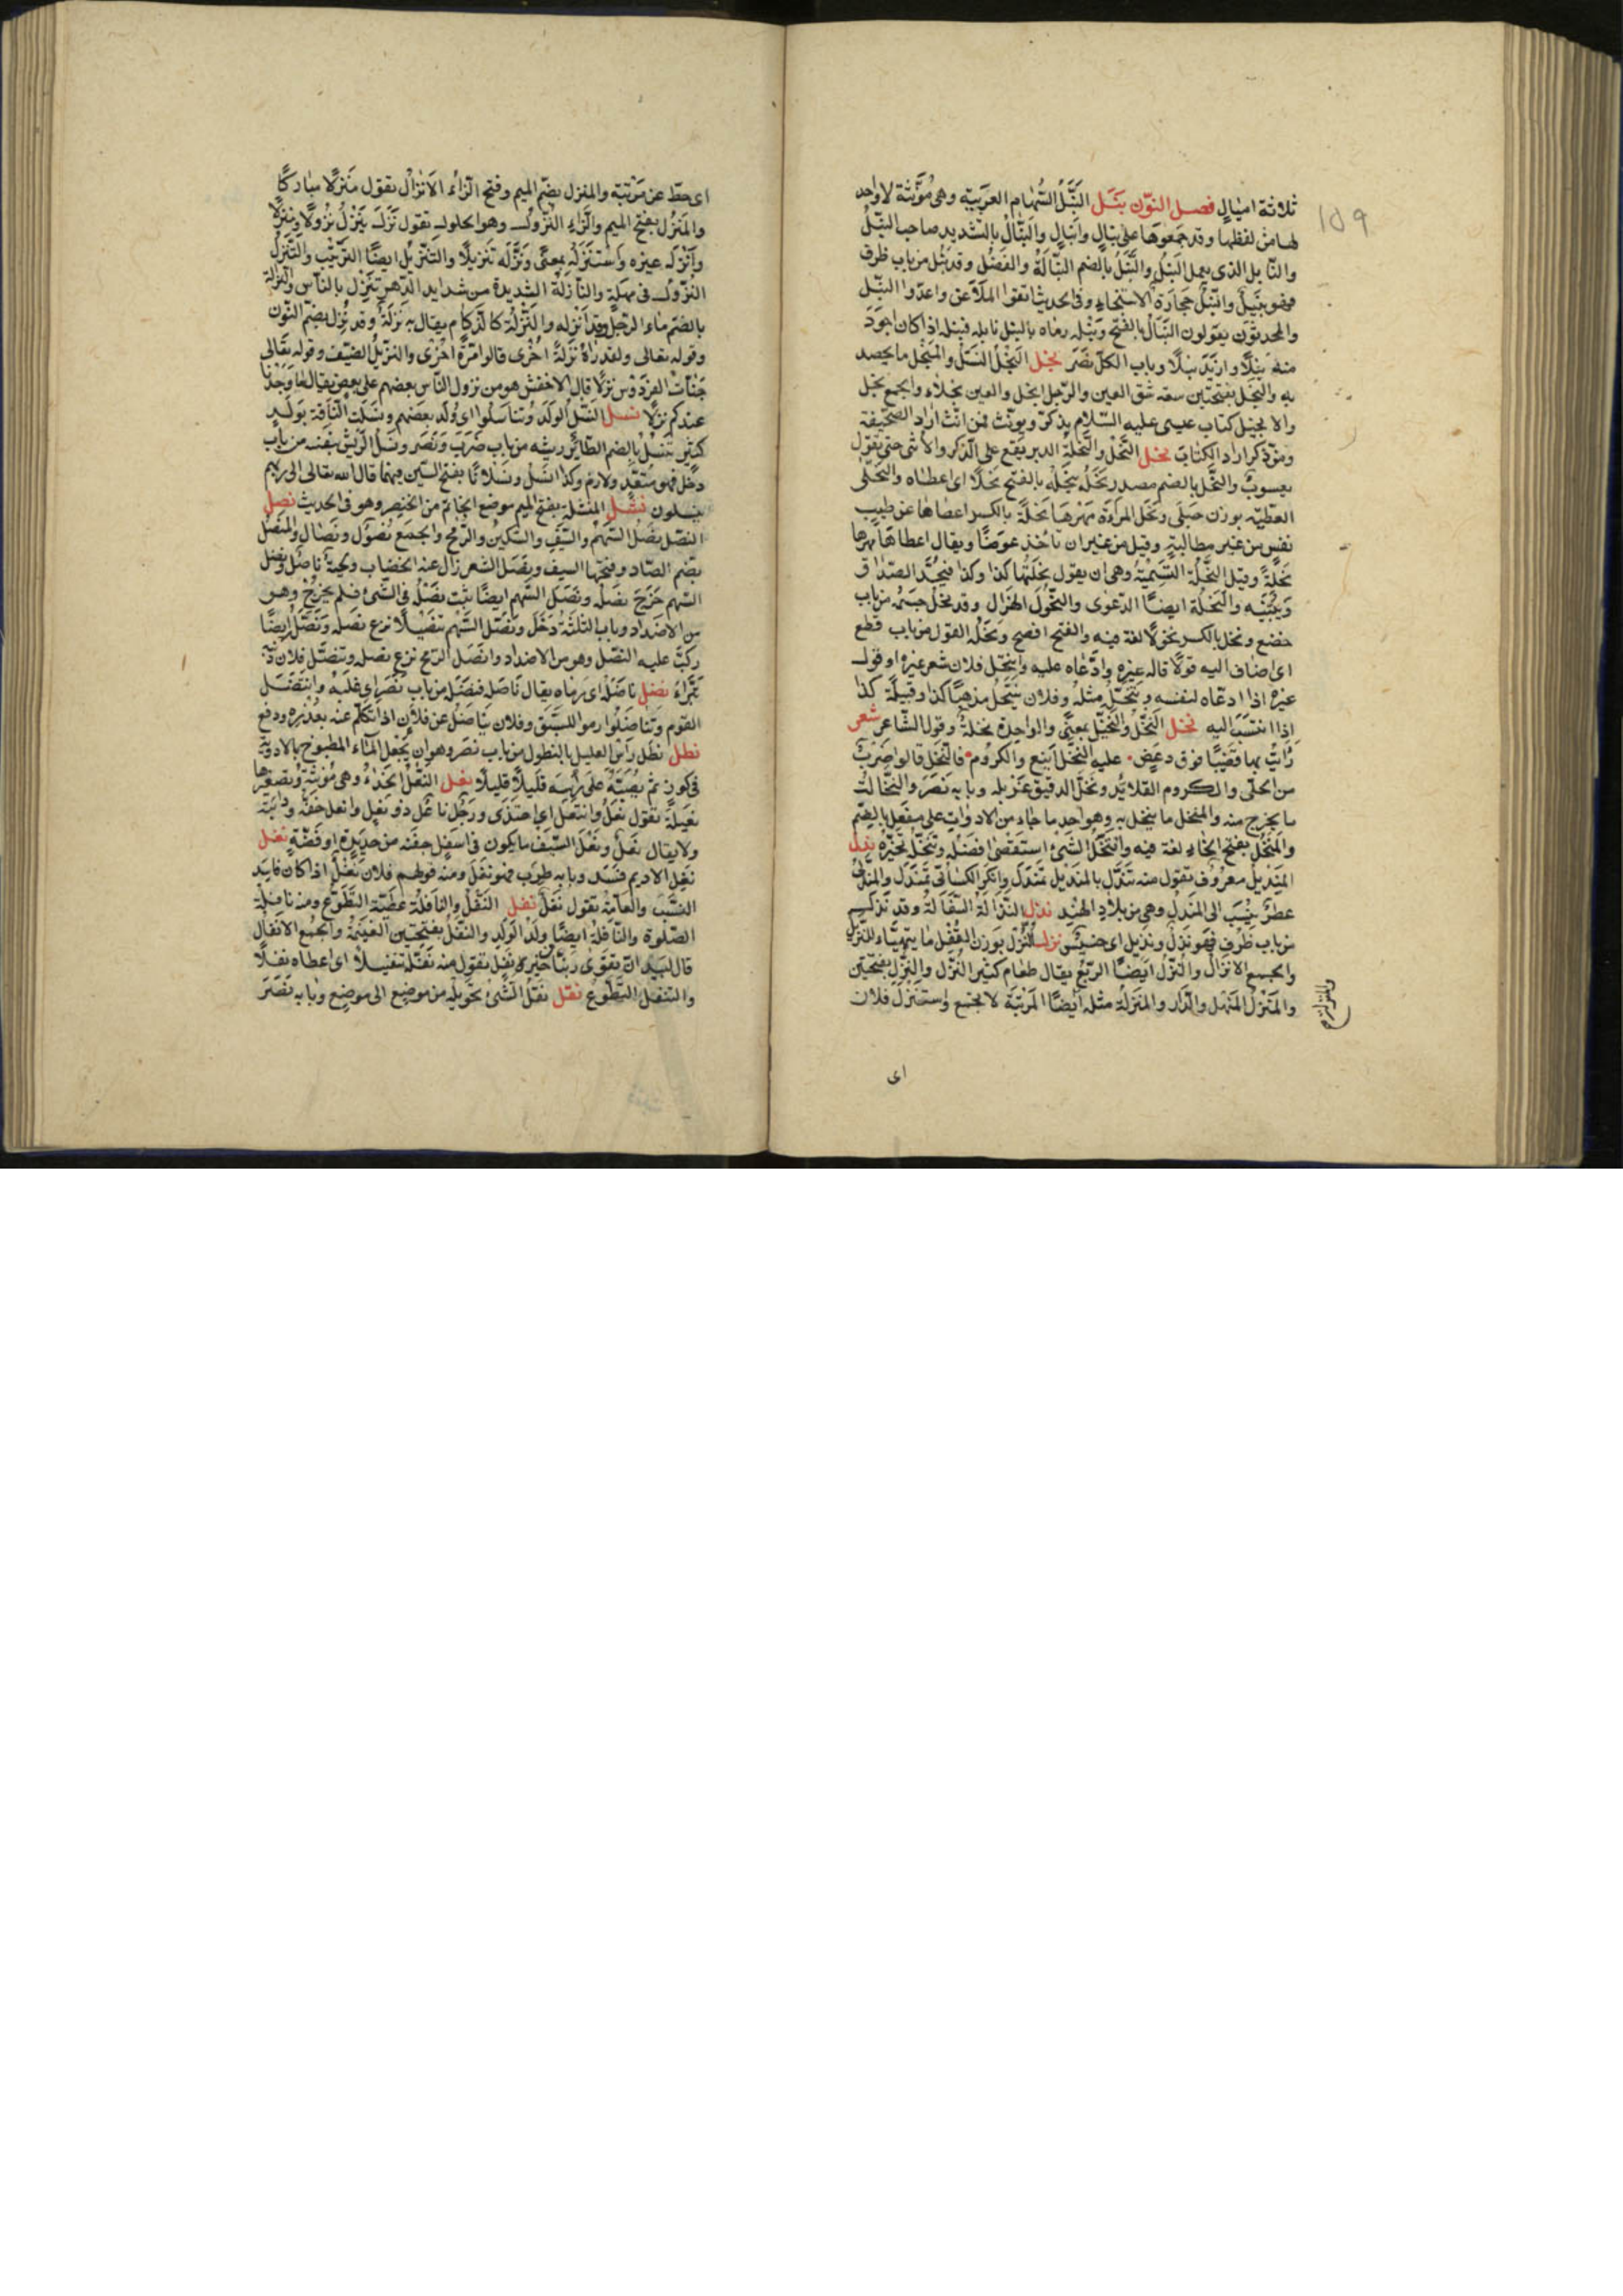 ثلاثة اميال فصل النون نبل النَّبْل السّهام العربيّة وهى مُؤنّثة لا واحد
لها من لفظها وقد جمعوها على نبال وانبال والنبّال بالتشديد صاحب النبل
والنابل الذى يعمل النبل والنُّبْل بالضم النبالة والفضل وقد نبل من باب ظرف
فهو نبيل والنبل حجارة الاستنجاء وفى الحديث اتقوا الملاعن واعدّوا النبل
والمحدثون يقولون النبل بالفتح ونبله رماه بالنبل نابله فنبله اذا كان اجود
منه نبلا وباب الكل نصر نجل النجل النسل والمنجل ما يحصد
به والنجل بفتحتين سعة شق العين والرجل انجل والعين نجلاء والجمع نجل
والانجيل كتاب عيسى عليه السلام يذكر ويؤنث فمن انث اراد الصحيفة
ومن ذكر اراد الكتاب نحل النحل والنحلة الدبر يقع على الذكر والانثى حتى تقول
يعسوب والنحل بالضم مصدر نحله ينحله بالفتح نحلا اى اعطاه والنحلى
العطيّة بوزن حبلى ونحل المرأة مهرها نحلة بالكسر اعطاها عن طيب
نفس من غير مطالبة وقيل من غير ان تأخذ عوضا ويقال اعطاها مهرها
نحلة وقيل النحلة التسمية وهى ان يقول نحلتها كذا وكذا فيحدّ الصداق
ويبيّنه والنحلة ايضا الدعوى والنحول الهزال وقد نحل جسمه من باب
خضع ونحل بالكسر نحولا لغة فيه والفتح افصح ونحله القول من باب قطع
اى اضاف اليه قولا قاله غيره وادّعاه عليه وانتحل فلان شعر غيره او قول
غيره اذا ادعاه لنفسه وتنحّل مثله وفلان ينتحل مذهب كذا وقبيلة كذا
اذا انتسب اليه نخل النخل والنخيل بمعنى والواحدة نخلة وقول الشاعر شعر
رأيت بها قضيبا فوق دعص عليه النخل اينع والكروم فالنخل قالوا ضرب
من الحلى والكروم القلائد ونخل الدقيق غربله وبابه نصر والنخالة
ما يخرج منه والمنخل ما ينخل به وهو احد ما جاء من الادوات على مفعل بالضم
والمنخل بفتح الخاء لغة فيه وانتخل الشئ استقصى افضله وتنخّله تخيّره ندل
المنديل معروف تقول منه تندّل بالمنديل تمندل وانكر الكسائى تمندل والمندلى
عطر ينسب الى المندل وهى من بلاد الهند نذل النذالة السفالة وقد نذل
من باب ظرف فهو نذل ونذيل اى خسيس نزل النزل بوزن القفل ما يتهيّأ للنزيل
والجمع الانزال والنزل ايضا الريع يقال طعام كثير النزل والنزل بفتحتين
والمنزل المنهل والدار والمنزلة مثله ايضا المرتبة لا تجمع واستنزل فلان
اى
اى حطّ عن مرتبته والمنزل بضم الميم وفتح الزاء الانزال تقول منزلا مباركا
والمنزل بفتح الميم والزاء النزول وهو الحلول تقول نزل ينزل نزولا ومنزلا
وانزله غيره واستنزله بمعنى ونزّله تنزيلا والتنزيل ايضا الترتيب والتنزّل
النزول فى مهلة والنازلة الشديدة من شدايد الدهر تنزل بالناس والنزالة
بالضم ماء الرجل وقد انزله والنزلة كالزكام يقال به نزلة وقد نزل بضم النون
وقوله تعالى ولقد رآه نزلة اخرى قالوا مرّة اخرى والنزيل الضيف وقوله تعالى
جنات الفردوس نزلا قال الاخفش هو من نزول الناس بعضهم على بعض يقال ما وجدنا
عندكم نزلا نسل النسل الولد وتناسلوا اى ولد بعضهم ونسلت الناقة بولد
كثير تنسل بالضم الطائر ريشه من باب ضرب ونصر ونسل الريش بنفسه من باب
دخل فهو متعدّ ولازم وكذا انسل ونسلانا بفتح السين فيهما قال الله تعالى الى ربهم
ينسلون نشل المنشلة بفتح الميم موضع الخاتم من الخنصر وهو فى الحديث نصل
النصل نصل السهم والسيف والسكين والرمح والجمع نصول ونصال والمنصل
بضم الصاد وفتحها السيف ونصل الشعر زال عنه الخضاب ولحية ناصل ونصل
السهم خرج نصله ونصل السهم ايضا ثبت نصله فى الشئ فلم يخرج وهو
من الاضداد وباب الثلثة دخل ونصّل السهم تنصيلا نزع نصله ونصّله ايضا
ركّب عليه النصل وهو من الاضداد وانصل الرمح نزع نصله وتنصّل فلان من ذنبه
تبرّأ نضل ناضله اى رماه يقال ناضله فنضله من باب نصر اى غلبه وانتضل
القوم وتناضلوا رموا للسبق وفلان يناضل عن فلان اذا تكلم عنه بعذره ودفع
نطل نطل رأس العليل بالنطول من باب نصر وهو ان يجعل الماء المطبوخ بالادوية
فى كوز ثم يصبّه على رأسه قليلا قليلا نعل النعل الحذاء وهى مؤنثة وتصغيرها
نعيلة تقول نعل وانتعل اى احتذى ورجل ناعل ذو نعل وانعل خفّه ودابته
ولا يقال نعل ونعل السيف ما يكون فى اسفل جفنه من حديدة او فضّة نغل
نغل الاديم فسد وبابه طرب فهو نغل ومنه قولهم فلان نغل اذا كان فاسد
النسب والعامّة تقول نغل نفل النفل والنافلة عطيّة التطوّع ومنه نافلة
الصلوة والنافلة ايضا ولد الولد والنفل بفتحتين الغنيمة والجمع الانفال
قال لبيد انّ تقوى ربّنا خير نفل تقول منه نفّله تنفيلا اى اعطاه نفلا
والتنفل التطوع نقل نقل الشئ تحويله من موضع الى موضع وبابه نصر